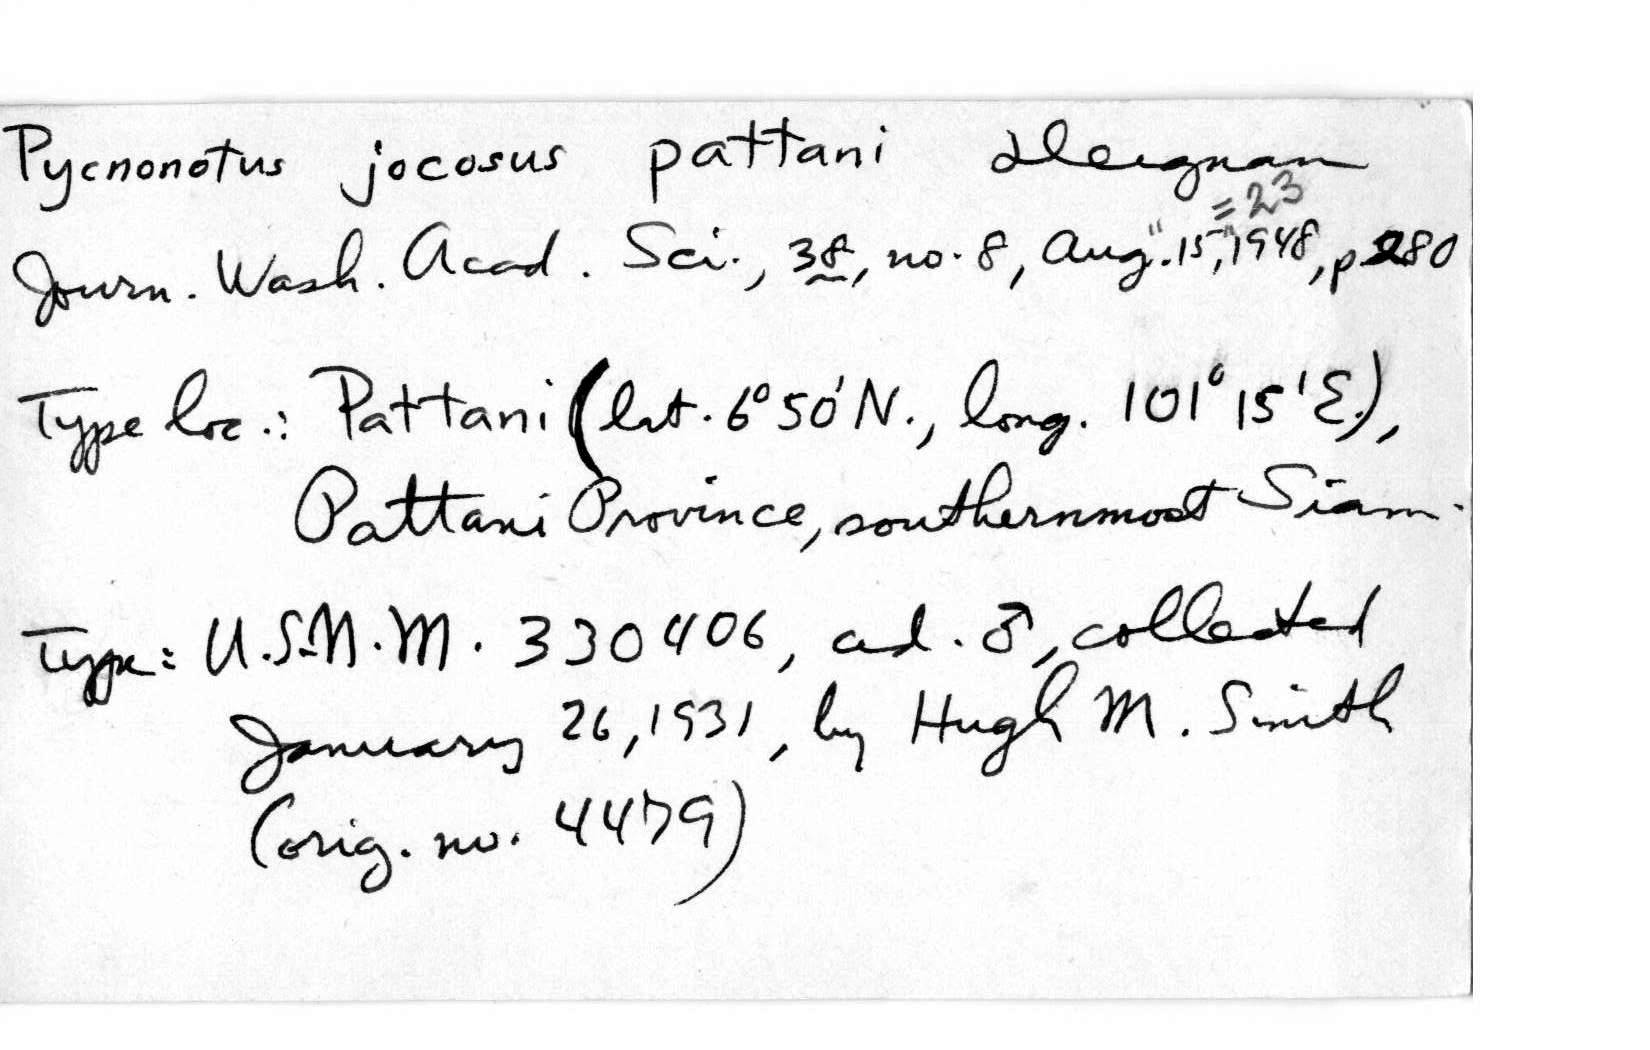 Pycnonotus jocosus pattani Deignan
= 23
Journ. Wash. Acad. Sci., 38, no. 8, Aug. "15," 1948, p. 280
Type loc.: Pattani (lat. 6° 50' N., long. 101° 15' E.),
Pattani Province, southernmost Siam.
Type: U.S.N.M. 330406, ad. ♂, collected
January 26, 1931, by Hugh M. Smith
(orig. no. 4479)